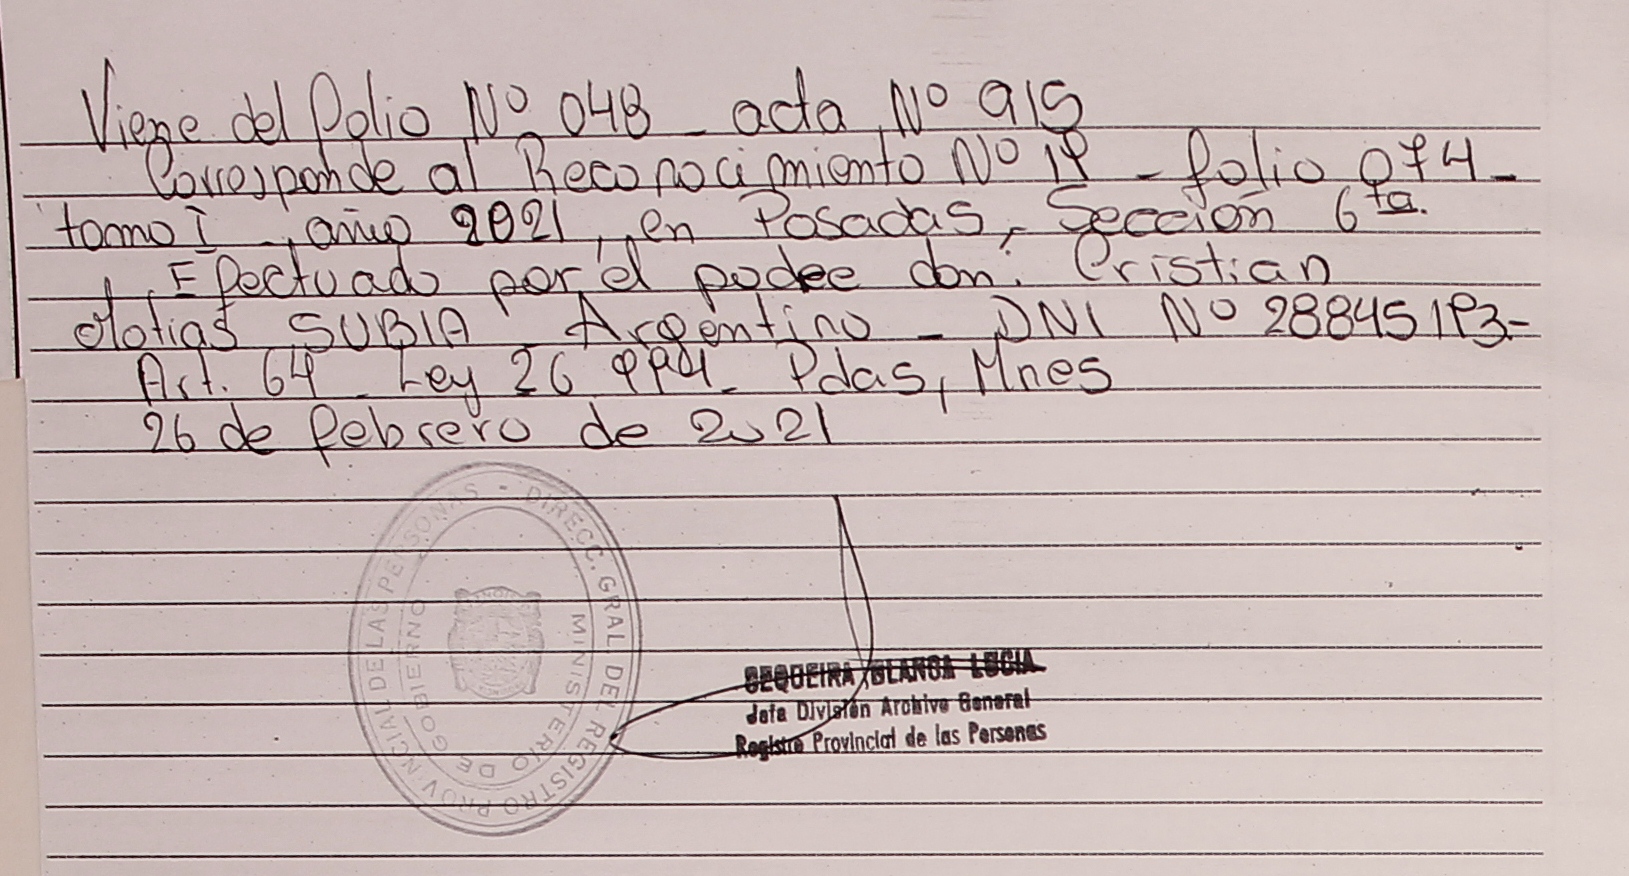 Viene del folio Nº 048 - acta Nº 915
Corresponde al Reconocimiento Nº 19 - folio 074 -
tomo I, año 2021, en Posadas, Sección 6ta.
Efectuado por el padre don: Cristian
Matias SUBIA Argentino - DNI Nº 28845193-
Art. 64 Ley 26 994 - Pdas, Mnes
26 de febrero de 2021
DIRECC. GRAL DEL REGISTRO PROVINCIAL DE LAS PERSONAS -
MINISTERIO DE GOBIERNO
SEQUEIRA BLANCA LUCIA
Jefa División Archivo General
Registro Provincial de las Personas